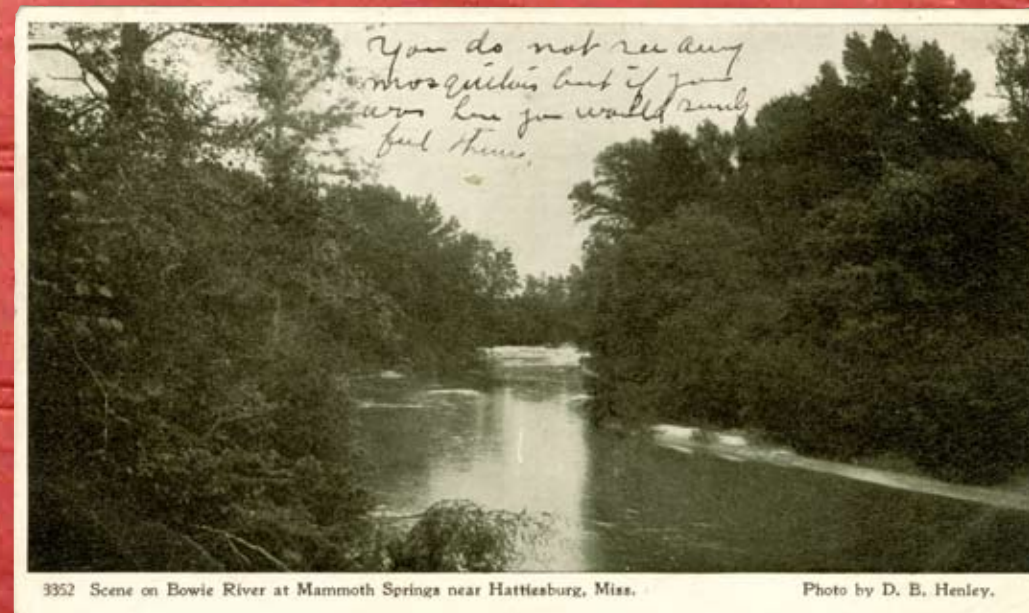 You do not see any
mosquitois but if you
was here you would surely
feel them.
3352 Scene on Bowie River at Mammoth Springs near Hattiesburg, Miss.
Photo by D. B. Henley.